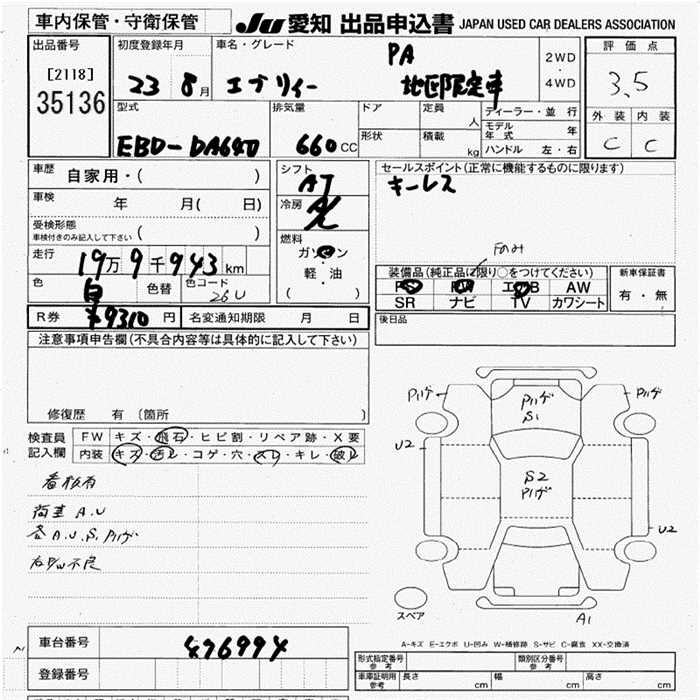 車内保管・守衛保管
JU 愛知 出品申込書 JAPAN USED CAR DEALERS ASSOCIATION
出品番号
[2118]
35136
初度登録年月
23 8月
車名・グレード
エブリィー
PA
地区限定車
2WD
・
4WD
評価点
3.5
外装 内装
C C
型式
EBD-DA64V
排気量
660 CC
ドア
形状
定員
人
積載
kg
ディーラー・並行
モデル年式 年
ハンドル 左・右
車歴 自家用・( )
車検 年 月( 日)
受検形態
車検付きのみ記入して下さい ( )
走行 19万9千943km
色 白 色替 色コード 26U
シフト
AT
冷房
A/C
燃料
ガソリン
・
軽・油
( )
セールスポイント(正常に機能するものに限ります)
キーレス
Fのみ
装備品(純正品に限り○をつけてください)
PS PW エアB AW
SR ナビ TV カワシート
新車保証書
有・無
後日品
R券 ¥9310円 名変通知期限 月 日
注意事項申告欄(不具合内容等は具体的に記入して下さい)
修復歴 有 (箇所 )
検査員
記入欄
FW キズ・飛石・ヒビ割・リペア跡・X要
内装 キズ・汚レ・コゲ・穴・スレ・キレ・破レ
看板有
各A.U.S.Pハゲ
右P/W不良
Pハゲ
Pハゲ
S1
Pハゲ
U2
S2
Pハゲ
U2
スペア
A1
A-キズ E-エクボ U-凹み W-補修跡 S-サビ C-腐食 XX-交換済
車台番号 476994
登録番号
形式指定番号
参考
類別区分番号
参考
車車証明用
参考
長さ cm 幅 cm 高さ cm